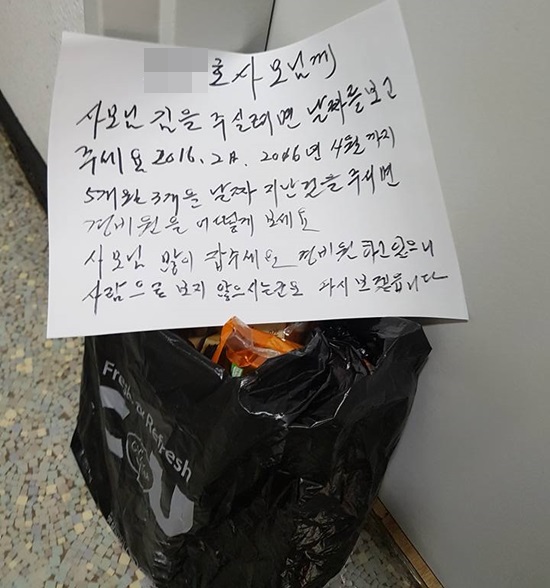 호 사모님께
사모님 김을 주실려면 날짜를 보고
주세요 2016. 2月. 2016년 4월까지
5개월 3개월 날짜 지난건을 주시면
경비원을 어떻게 보세요
사모님 많이 잡수세요 경비원 하고 있으니
사람으로 보지 않으시는군요 다시보겠습니다
Fresh Refresh